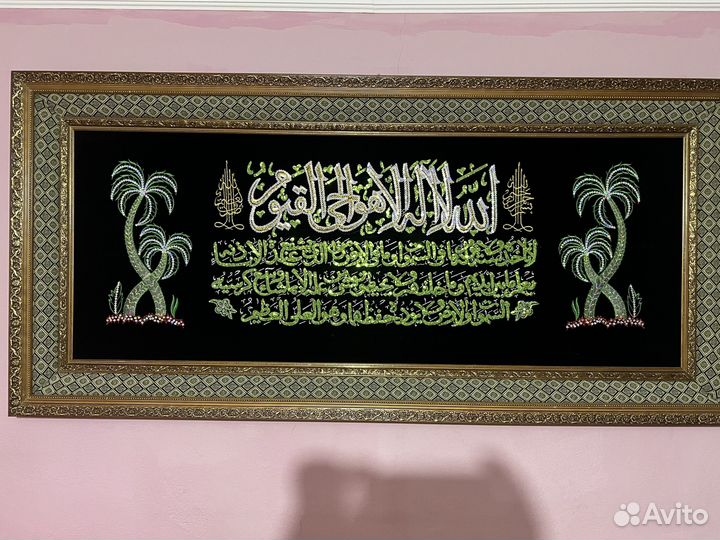 الله لا إله إلا هو الحي القيوم
لا تأخذه سنة ولا نوم له ما في السموات وما في الأرض من ذا الذي يشفع عنده إلا بإذنه
يعلم ما بين أيديهم وما خلفهم ولا يحيطون بشيء من علمه إلا بما شاء وسع كرسيه
السموات والأرض ولا يؤده حفظهما وهو العلي العظيم
Avito